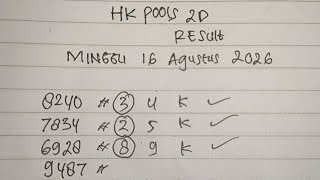 HK POOLS 2D
RESULT
MINGGU 16 Agustus 2026
8240 # 3 4 K ✓
7834 # 2 5 K ✓
6928 # 8 9 K ✓
9487 #